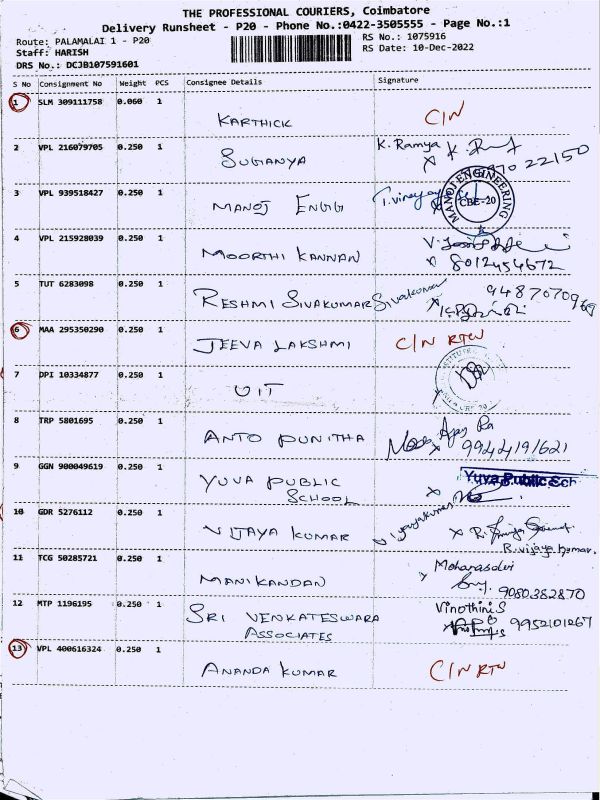 THE PROFESSIONAL COURIERS, Coimbatore
Delivery Runsheet - P20 - Phone No.:0422-3505555 - Page No.:1
Route: PALAMALAI 1 - P20
Staff: HARISH
DRS No.: DCJB107591601
RS No.: 1075916
RS Date: 10-Dec-2022
S No Consignment No Weight PCS Consignee Details Signature
1 SLM 309111758 0.060 1 KARTHICK C/N
2 VPL 216079705 0.250 1 SUGANYA K. Ramya
3 VPL 939518427 0.250 1 MANOJ ENGG MANOJ ENGINEERING CBE-20
4 VPL 215928039 0.250 1 MOORTHI KANNAN 8012454672
5 TUT 6283098 0.250 1 RESHMI SIVAKUMAR Sivakumar 9487070969
6 MAA 295350290 0.250 1 JEEVA LAKSHMI C/N RTN
7 DPI 10334877 0.250 1 UIT
8 TRP 5801695 0.250 1 ANTO PUNITHA 9944191621
9 GGN 900049619 0.250 1 YUVA PUBLIC SCHOOL Yuva Public Sch
10 GDR 5276112 0.250 1 VIJAYA KUMAR R. vijaya kumar.
11 TCG 50285721 0.250 1 MANIKANDAN 9080382870
12 MTP 1196195 0.250 1 SRI VENKATESWARA ASSOCIATES Vinothini S 9952101267
13 VPL 400616324 0.250 1 ANANDA KUMAR C/N RTN